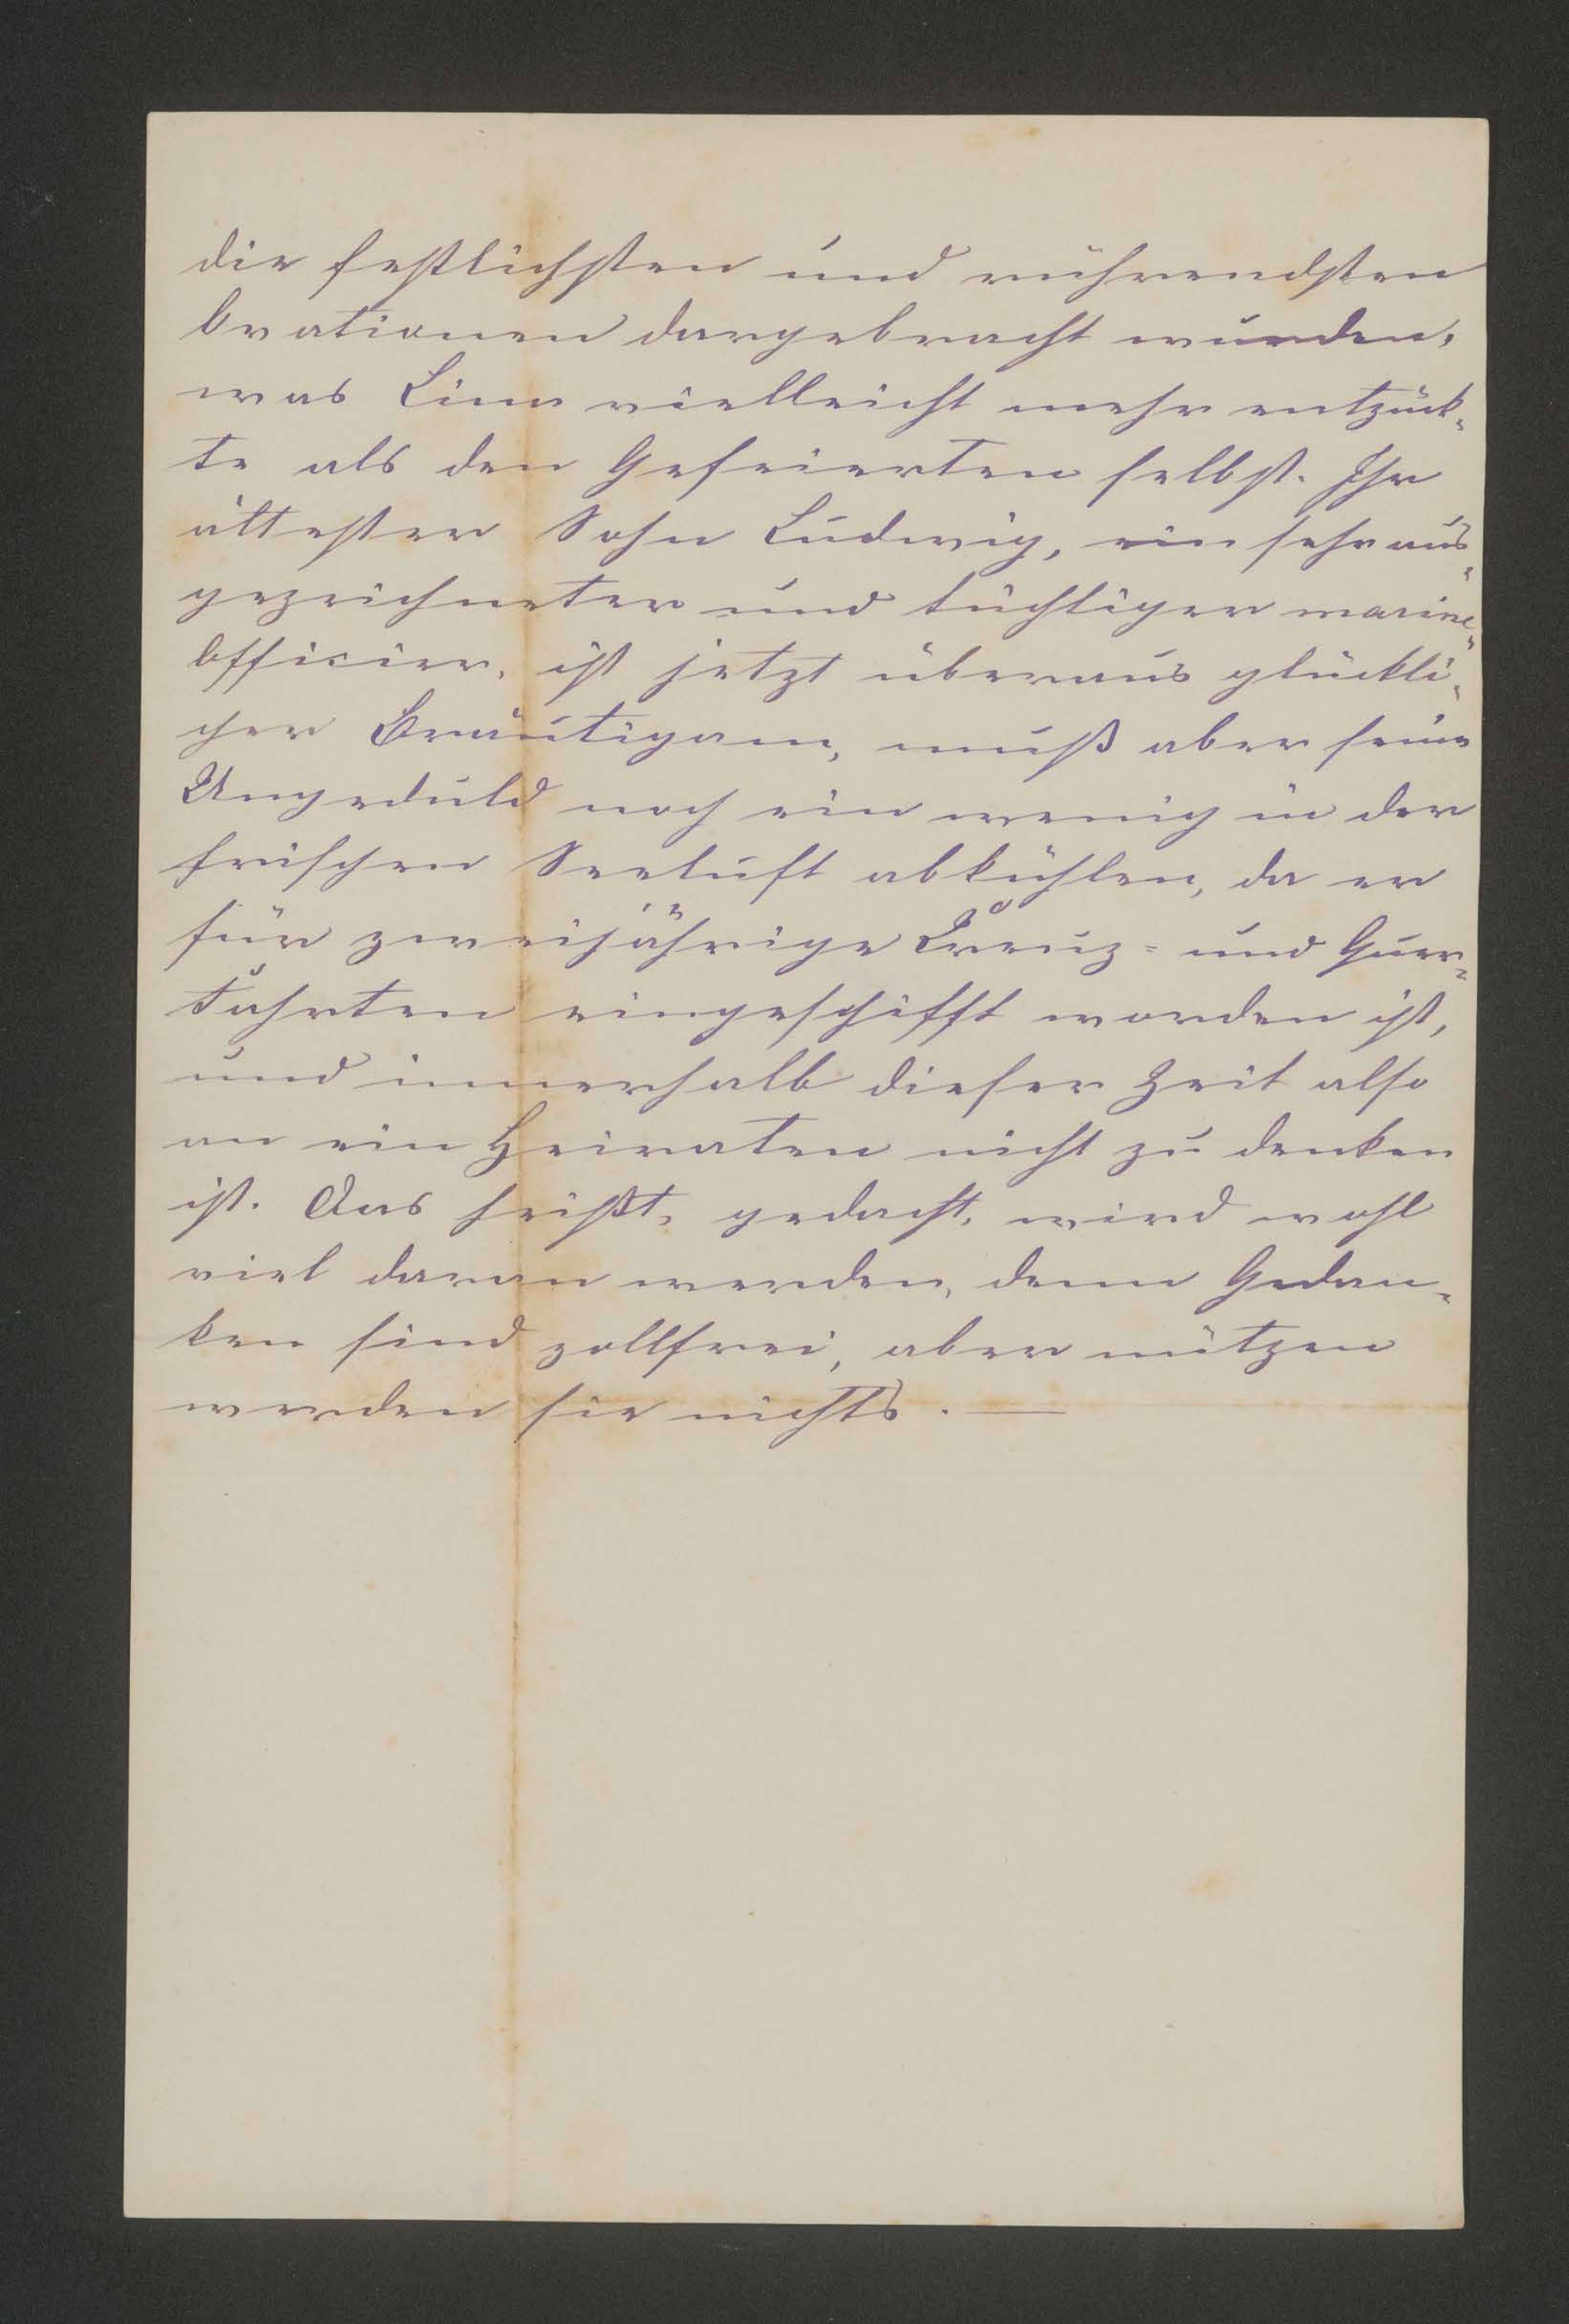 die festlichsten und rührendsten
Ovationen dargebracht wurden,
was Lina vielleicht mehr entzück-
te als den Gefeierten selbst. Ihr
ältester Sohn Ludwig, ein sehr aus-
gezeichneter und tüchtiger marine-
Officier, ist jetzt überaus glückli-
cher Bräutigam, muß aber seine
Ungeduld noch ein wenig in der
frischen Seeluft abkühlen, da er
für zweijährige Kreuz- und Quer-
Fahrten eingeschifft worden ist,
und innerhalb dieser Zeit also
an ein Heiraten nicht zu denken
ist. Das heißt, gedacht, wird wohl
viel daran werden, denn Gedan-
ken sind zollfrei, aber nützen
werden sie nichts. —